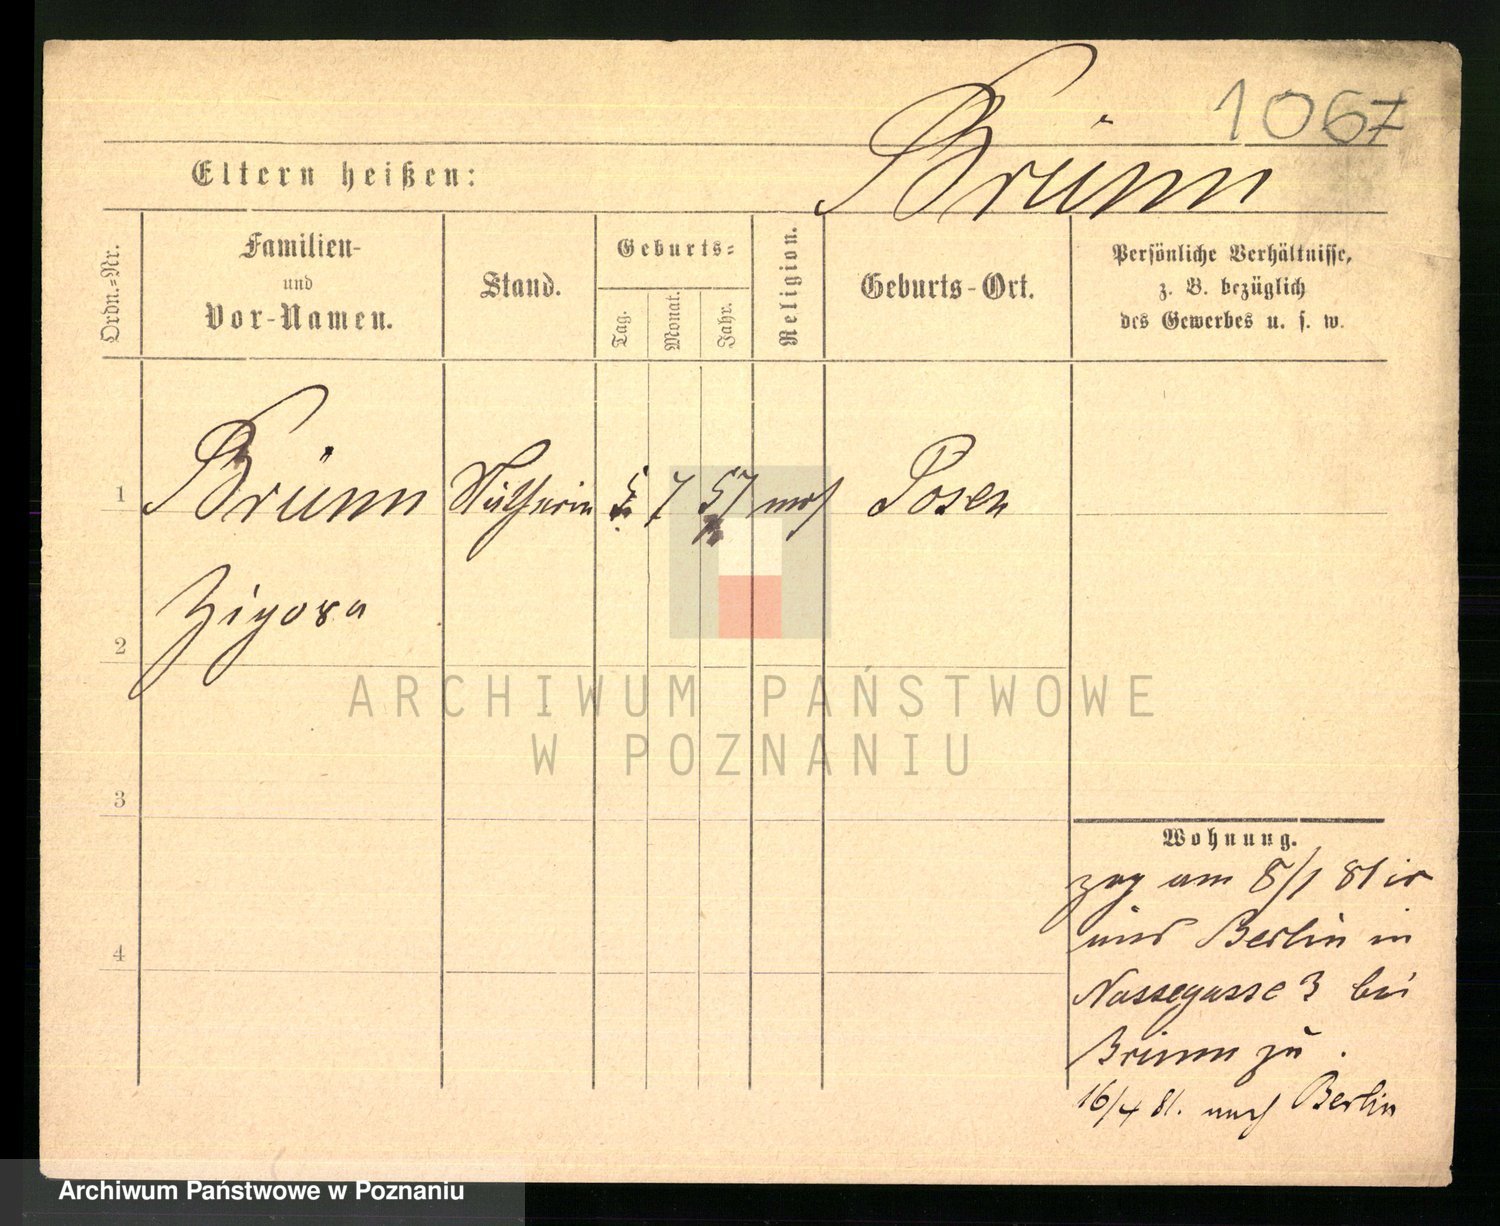 1067
Brünn
Eltern heißen:
Ordn.-Nr.
Familien-
und
Vor-Namen.
Stand.
Geburts-
Tag.
Monat.
Jahr.
Religion.
Geburts-Ort.
Persönliche Verhältnisse,
z. B. bezüglich
des Gewerbes u. s. w.
1 Brünn 7 57 mos Posen
2
3
4
ARCHIWUM PAŃSTWOWE
W POZNANIU
Wohnung.
zog am 8/1 81
Berlin in
Nassegasse 3 bei
Brünn zu.
16/4 81. nach Berlin
Archiwum Państwowe w Poznaniu